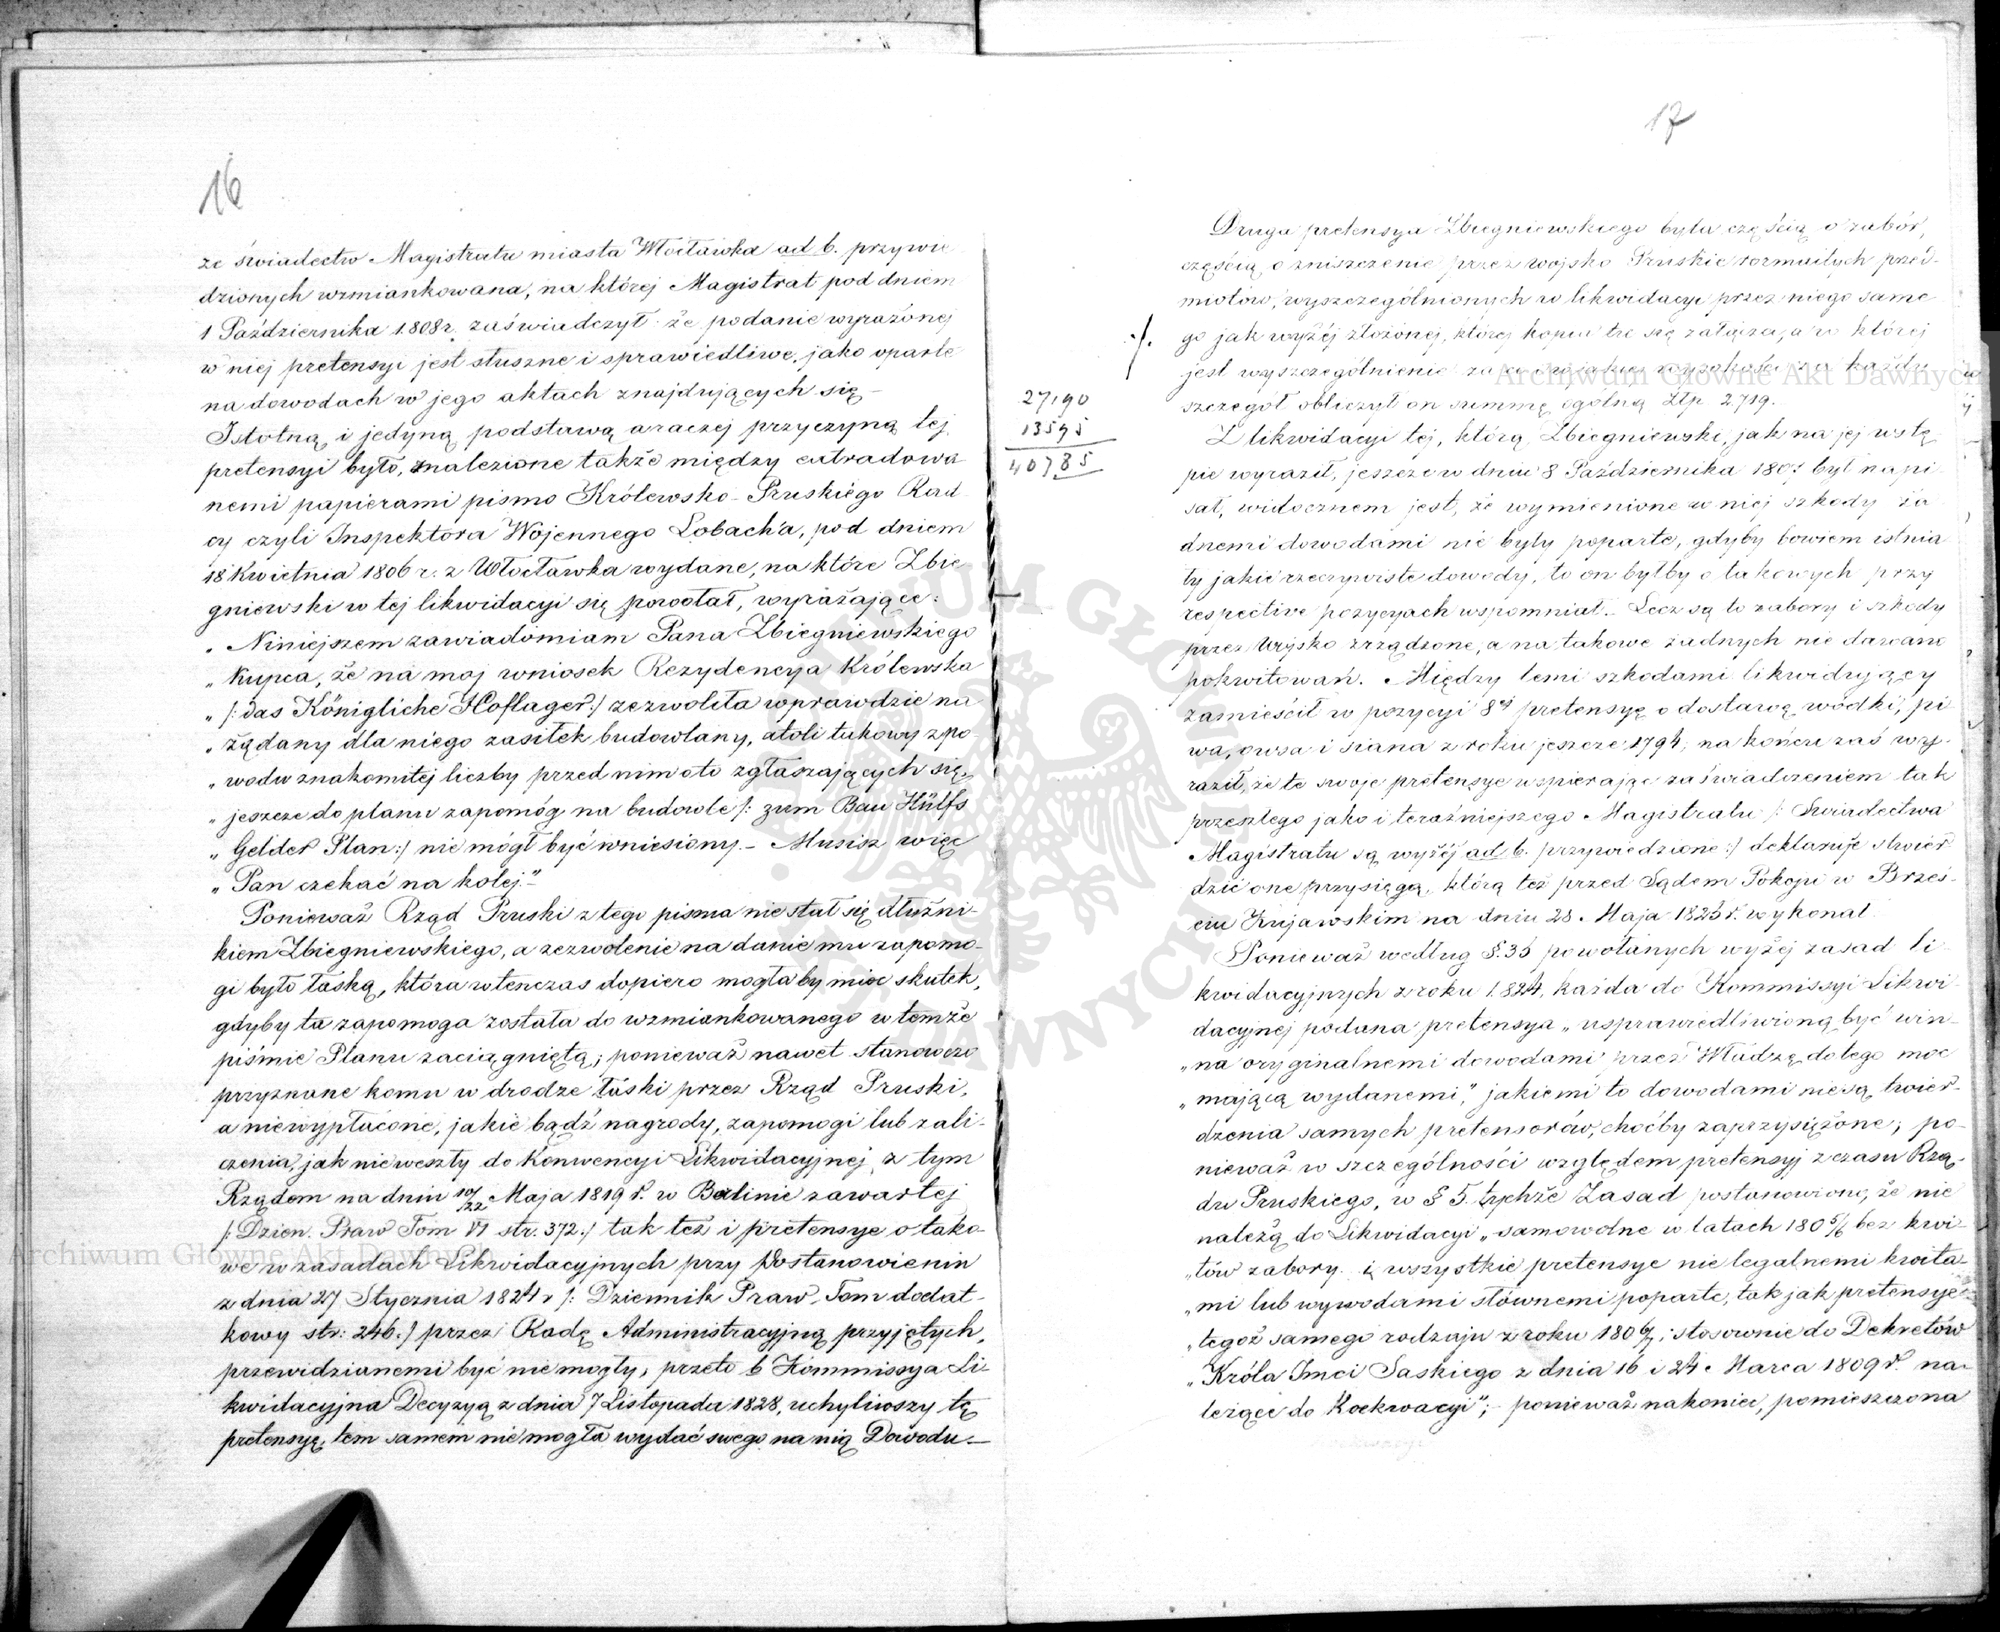 16
ze świadectw Magistratu miasta Włocławka ad b. przywie
dzionych wzmiankowana, na której Magistrat pod dniem
1 Października 1808 r. zaświadczył że podanie wyrażonej
w niej pretensyi jest słuszne i sprawiedliwe, jako oparte
na dowodach w jego aktach znajdujących się –
Istotną i jedyną podstawą a raczej przyczyną tej
pretensyi było, znalezione także między extradowa
nemi papierami pismo Królewsko-Pruskiego Rad
cy czyli Inspektora Wojennego Lobach'a, pod dniem
18 Kwietnia 1806 r. z Włocławka wydane, na które Zbie
gniewski w tej likwidacyi się powołał, wyrażające:
„Niniejszem zawiadomiam Pana Zbiegniewskiego
„Kupca, że na moj wniosek Rezydencya Królewska
„/: das Königliche Hoflager :/ zezwoliła wprawdzie na
„żądany dla niego zasiłek budowlany, atoli takowy z po-
„wodu znakomitej liczby przed nim oto zgłaszających się,
„jeszcze do planu zapomóg na budowle /: zum Bau Hülfs
„Gelder Plan :/ nie mógł być wniesiony. – Musisz więc
„Pan czekać na kolej."
Ponieważ Rząd Pruski z tego pisma nie stał się dłużni-
kiem Zbiegniewskiego, a zezwolenie na danie mu zapomo-
gi było łaską, która wtenczas dopiero mogła by mieć skutek,
gdyby ta zapomoga została do wzmiankowanego w temże
piśmie Planu zaciągniętą; ponieważ nawet stanowczo
przyznane komu w drodze łaski przez Rząd Pruski,
a niewypłacone, jakie bądź nagrody, zapomogi lub zali-
czenia, jak nieweszły do Konwencyi Likwidacyjnej z tym
Rządem na dniu 10/22 Maja 1819 r. w Berlinie zawartej
/: Dzien. Praw Tom VI str. 372 :/ tak też i pretensye o tako-
we w zasadach Likwidacyjnych przy Postanowieniu
z dnia 27 Stycznia 1824 r /: Dziennik Praw. Tom dodat-
kowy str: 246. :/ przez Radę Administracyjną przyjętych,
przewidzianemi być nie mogły, przeto b Kommissya Li-
kwidacyjna Decyzyą z dnia 7 Listopada 1828, uchyliwszy tę
pretensyę, tem samem nie mogła wydać swego na nią Dowodu. –
27190
13595
40785
17
Druga pretensya Zbiegniewskiego była częścią o zabór,
częścią o zniszczenie przez wojsko Pruskie rozmaitych przed-
miotów, wyszczególnionych w likwidacyi przez niego same
go jak wyżej złożonej, której kopia tu się załącza, a w której
jest wyszczególnienie
szczegół obliczył on summę ogólną Złp. 2719.
Z likwidacyi tej, którą Zbiegniewski, jak na jej wstę-
pie wyraził, jeszcze w dniu 8 Października 1807 był napi
sał, widocznem jest, że wymienione w niej szkody ża
dnemi dowodami nie były poparte, gdyby bowiem istnia
ły jakie rzeczywiste dowody, to on byłby o takowych przy
respective pozycyach wspomniał. – Lecz są to zabory i szkody
przez Wojsko zrządzone, a na takowe żadnych nie dawano
pokwitowań. Między temi szkodami likwidujący
zamieścił w pozycyi 8ej pretensyę o dostawę wódki, pi
wa, owsa i siana z roku jeszcze 1794; na końcu zaś wy-
raził, że te swoje pretensye wspierając zaświadczeniem tak
przeszłego jako i teraźniejszego Magistratu /: Świadectwa
Magistratu są wyżej ad b. przywiedzione :/ deklaruje stwier
dzić one przysięgą, którą też przed Sądem Pokoju w Brześ-
ciu Kujawskim na dniu 28 Maja 1823 r. wykonał.
Ponieważ według §. 35 powołanych wyżej zasad li
kwidacyjnych z roku 1824, każda do Kommissyi Likwi
dacyjnej podana pretensya „usprawiedliwioną być win-
„na oryginalnemi dowodami przez Władzę do tego moc
„mającą wydanemi," jakiemi to dowodami nie są twier-
dzenia samych pretensorów, choćby zaprzysiężone; po-
nieważ w szczególności względem pretensyj z czasu Rzą-
du Pruskiego, w § 5. tychże Zasad postanowiono, że nie
należą do Likwidacyi „samowolne w latach 180 5/6 bez kwi-
„tów zabory i wszystkie pretensye nie legalnemi kwita-
„mi lub wywodami słownemi poparte, tak jak pretensye
„tegoż samego rodzaju z roku 180 6/7; stosownie do Dekretów
„Króla Jmci Saskiego z dnia 16 i 24 Marca 1809 r. na-
leżące do Koekwacyi"; – ponieważ nakoniec, pomieszczona
Archiwum Główne Akt Dawnych
Archiwum Główne Akt Dawnych